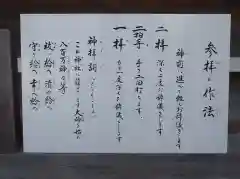 参拝の作法
神前に進み軽くお辞儀をします
二拝 深く二度お辞儀をします
二拍手 手を二回打ちます
一拝 もう一度深くお辞儀をします
神拝詞
この神社に
八百万神等
祓へ給へ 清め給へ
守り給へ 幸へ給へ